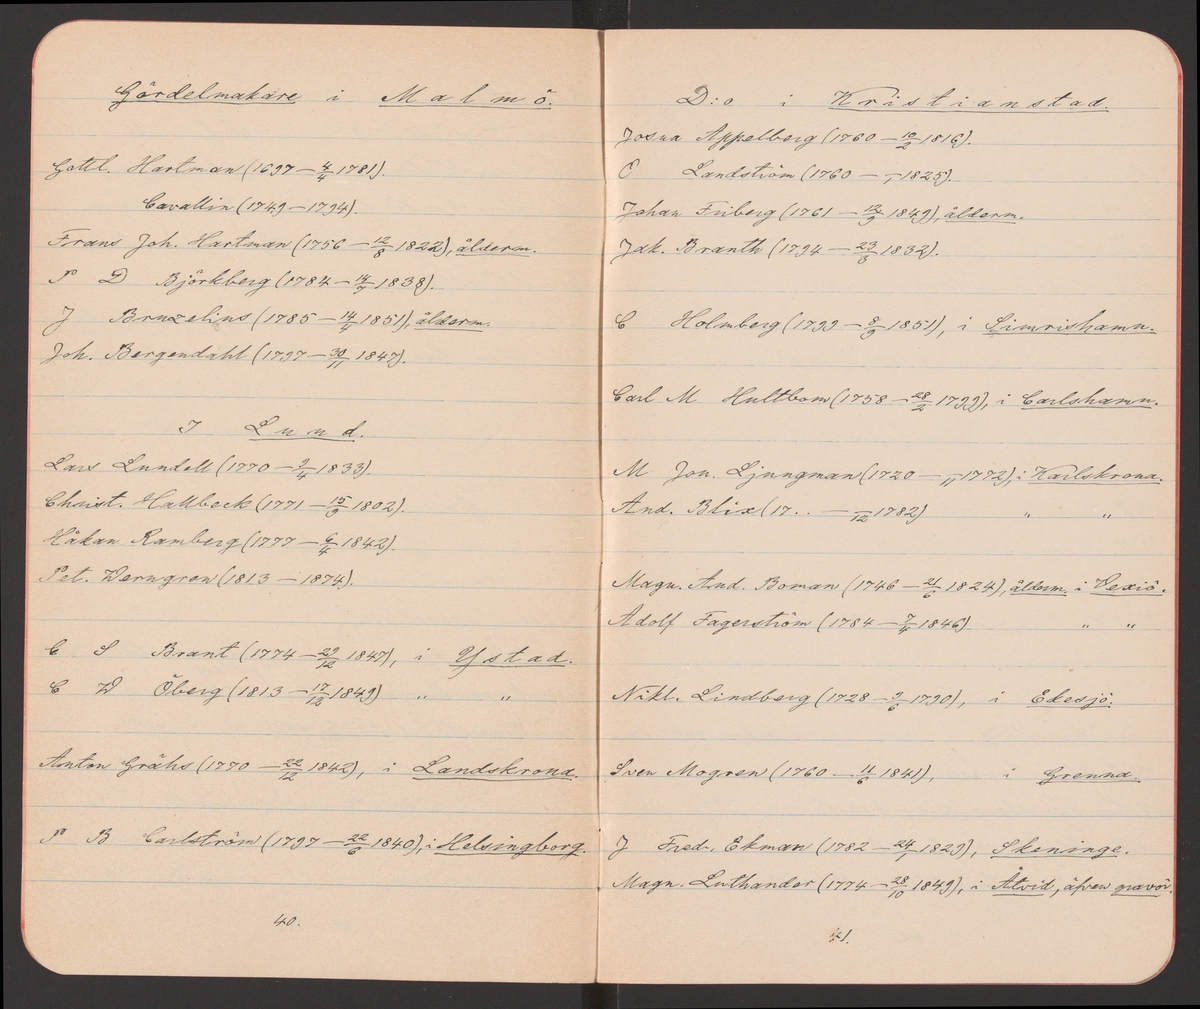 Gördelmakare i Malmö.
Gottl. Hartman (1697 – 4/4 1781).
Cavallin (1749 – 1794).
Frans Joh. Hartman (1756 – 12/8 1822), ålderm.
P D Björkberg (1784 – 14/7 1838).
J Bruzelius (1785 – 14/4 1851), ålderm.
Joh. Bergendahl (1797 – 30/11 1847).
I Lund.
Lars Lundell (1770 – 9/4 1833).
Christ. Hallbeck (1771 – 15/9 1802).
Håkan Ramberg (1777 – 6/4 1842).
Pet. Werngren (1813 – 1874).
C S Brant (1774 – 29/12 1847), i Ystad.
C W Öberg (1813 – 17/12 1849) " "
Anton Grähs (1770 – 22/12 1842), i Landskrona.
P B Carlström (1797 – 22/6 1840), i Helsingborg.
40.
D:o i Kristianstad.
Josua Appelberg (1760 – 10/2 1816).
O Landström (1760 – /1 1825).
Johan Friberg (1761 – 12/9 1849), ålderm.
Jak. Branth (1794 – 23/8 1832).
C Holmberg (1799 – 8/9 1851), i Simrishamn.
Carl M Hultbom (1758 – 28/2 1799), i Carlshamn.
M Jon. Ljungman (1720 – /11 1772), i Karlskrona.
And. Blix (17.. – /12 1782) " "
Magn. And. Boman (1746 – 21/6 1824), ålderm. i Vexiö.
Adolf Fagerström (1784 – 7/4 1846) " "
Nikl. Lindberg (1728 – 9/6 1790), i Ekesjö.
Sven Mogren (1760 – 11/6 1841), i Grenna.
J Fredr. Ekman (1782 – 24/1 1829), Skeninge.
Magn. Luthander (1774 – 28/10 1849), i Åtvid, äfven gravör.
41.